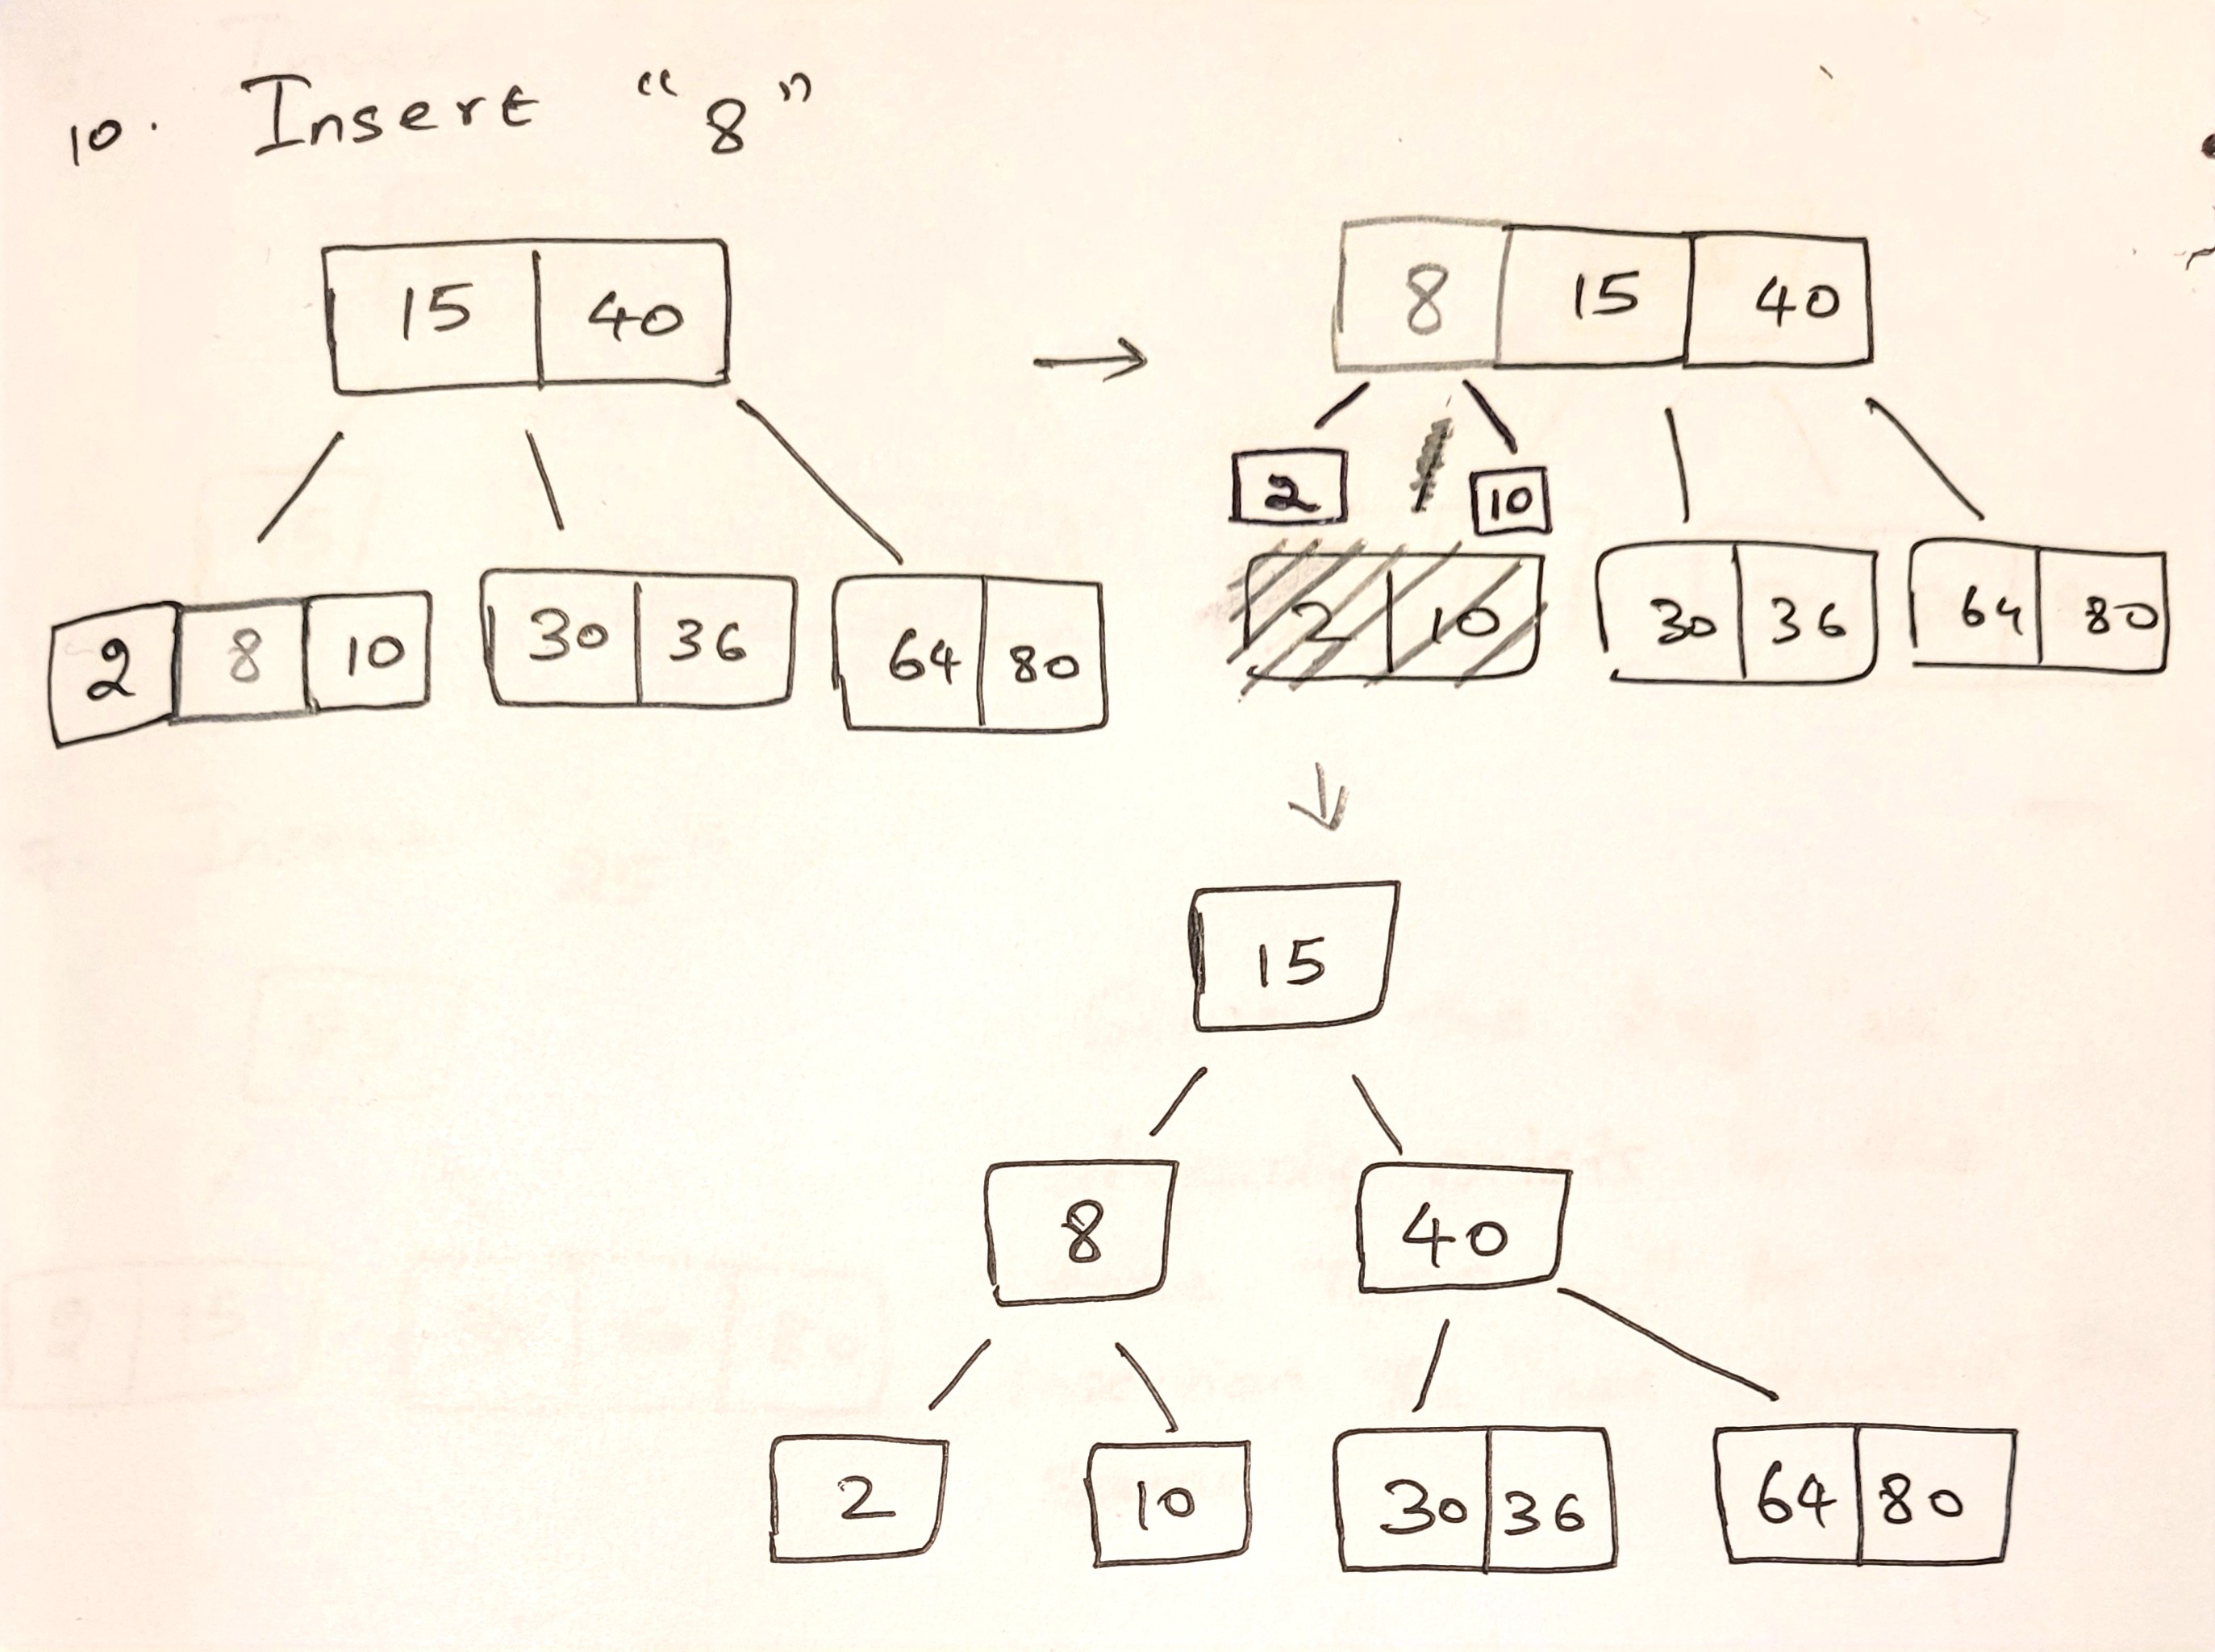 10. Insert "8"
15 40
2 8 10 30 36 64 80
→
8 15 40
2 10
2 10 30 36 64 80
↓
15
8 40
2 10 30 36 64 80